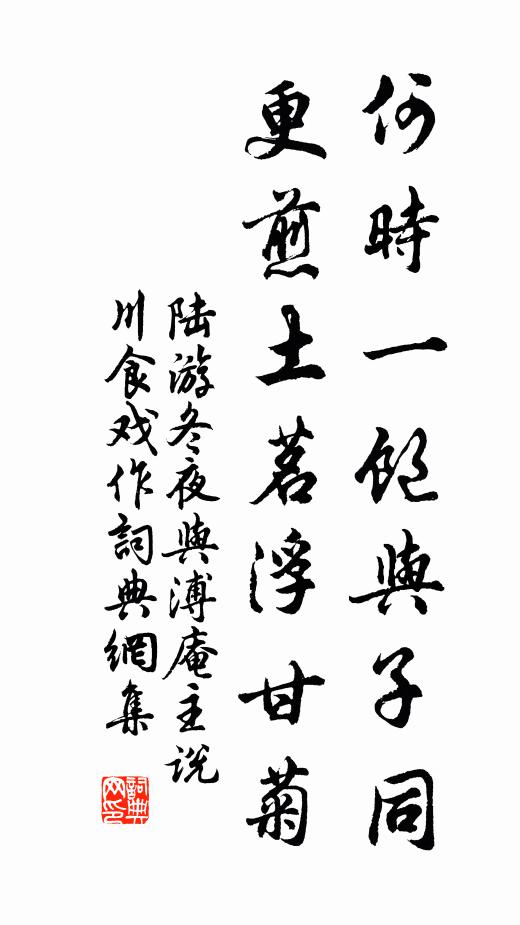 何時一飽與子同
更煎土茗浮甘菊
陆游冬夜與溥庵主説
川食戏作詞典網集
詞典
网印